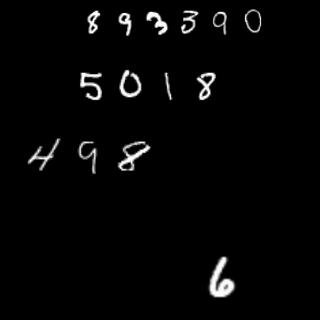 893390
5018
498
6